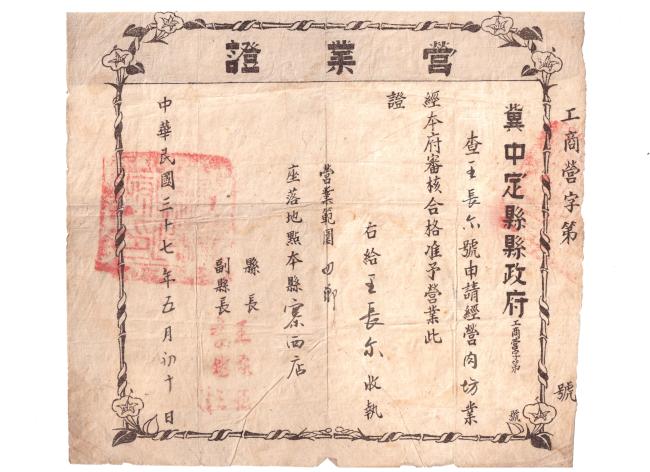 營業證
工商營字第 號
冀中定縣縣政府工商營字第 號
查王長尔號申請經營肉坊業
經本府審核合格准予營業此
證
右給王長尔收執
營業範圍
座落地點本縣寨西店
縣長
副縣長
中華民國三十七年五月初十日